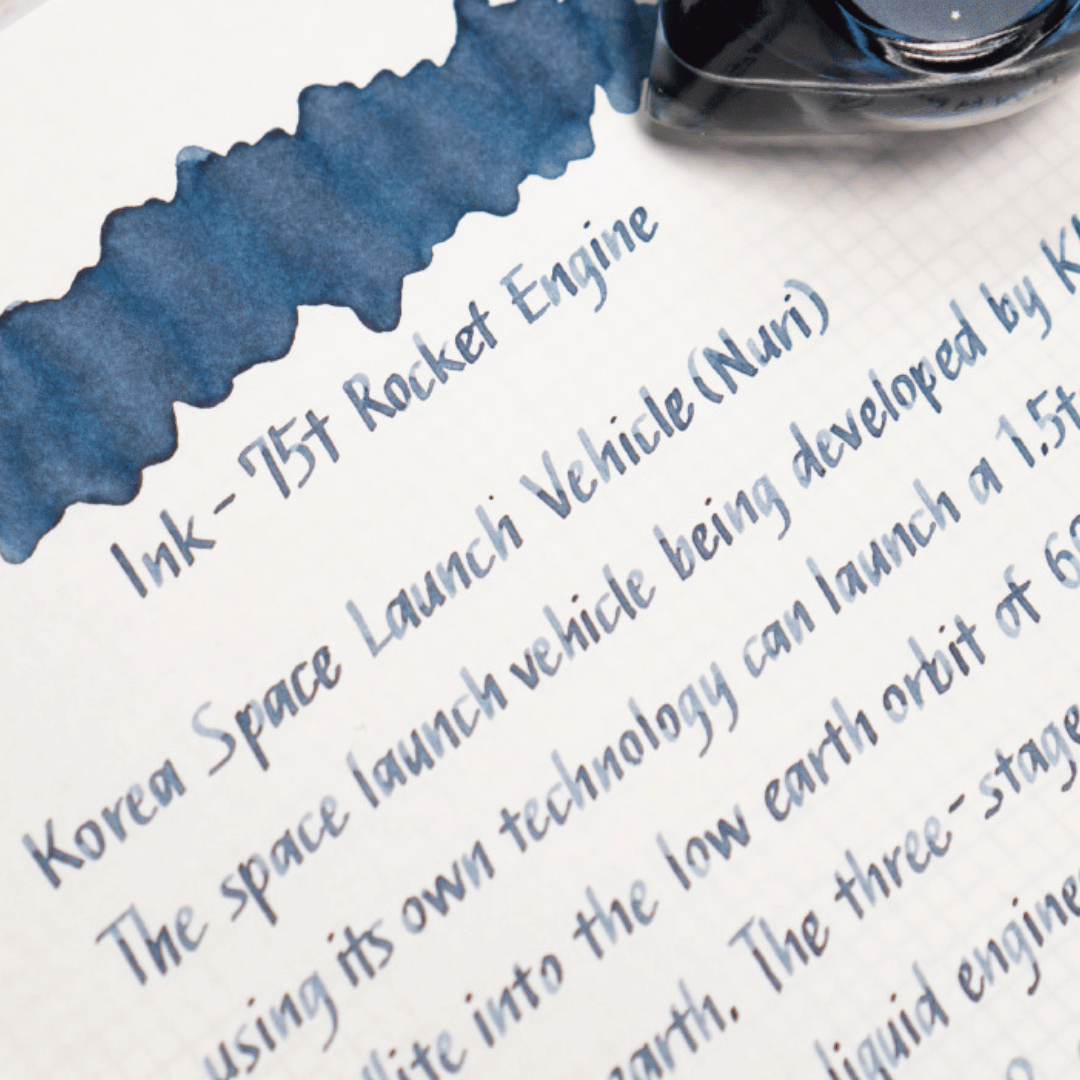 Ink - 75t Rocket Engine
Korea Space Launch Vehicle (Nuri)
The space launch vehicle being developed by
using its own technology can launch a 1.5t
into the low earth orbit of
earth. The three-stage
liquid engine